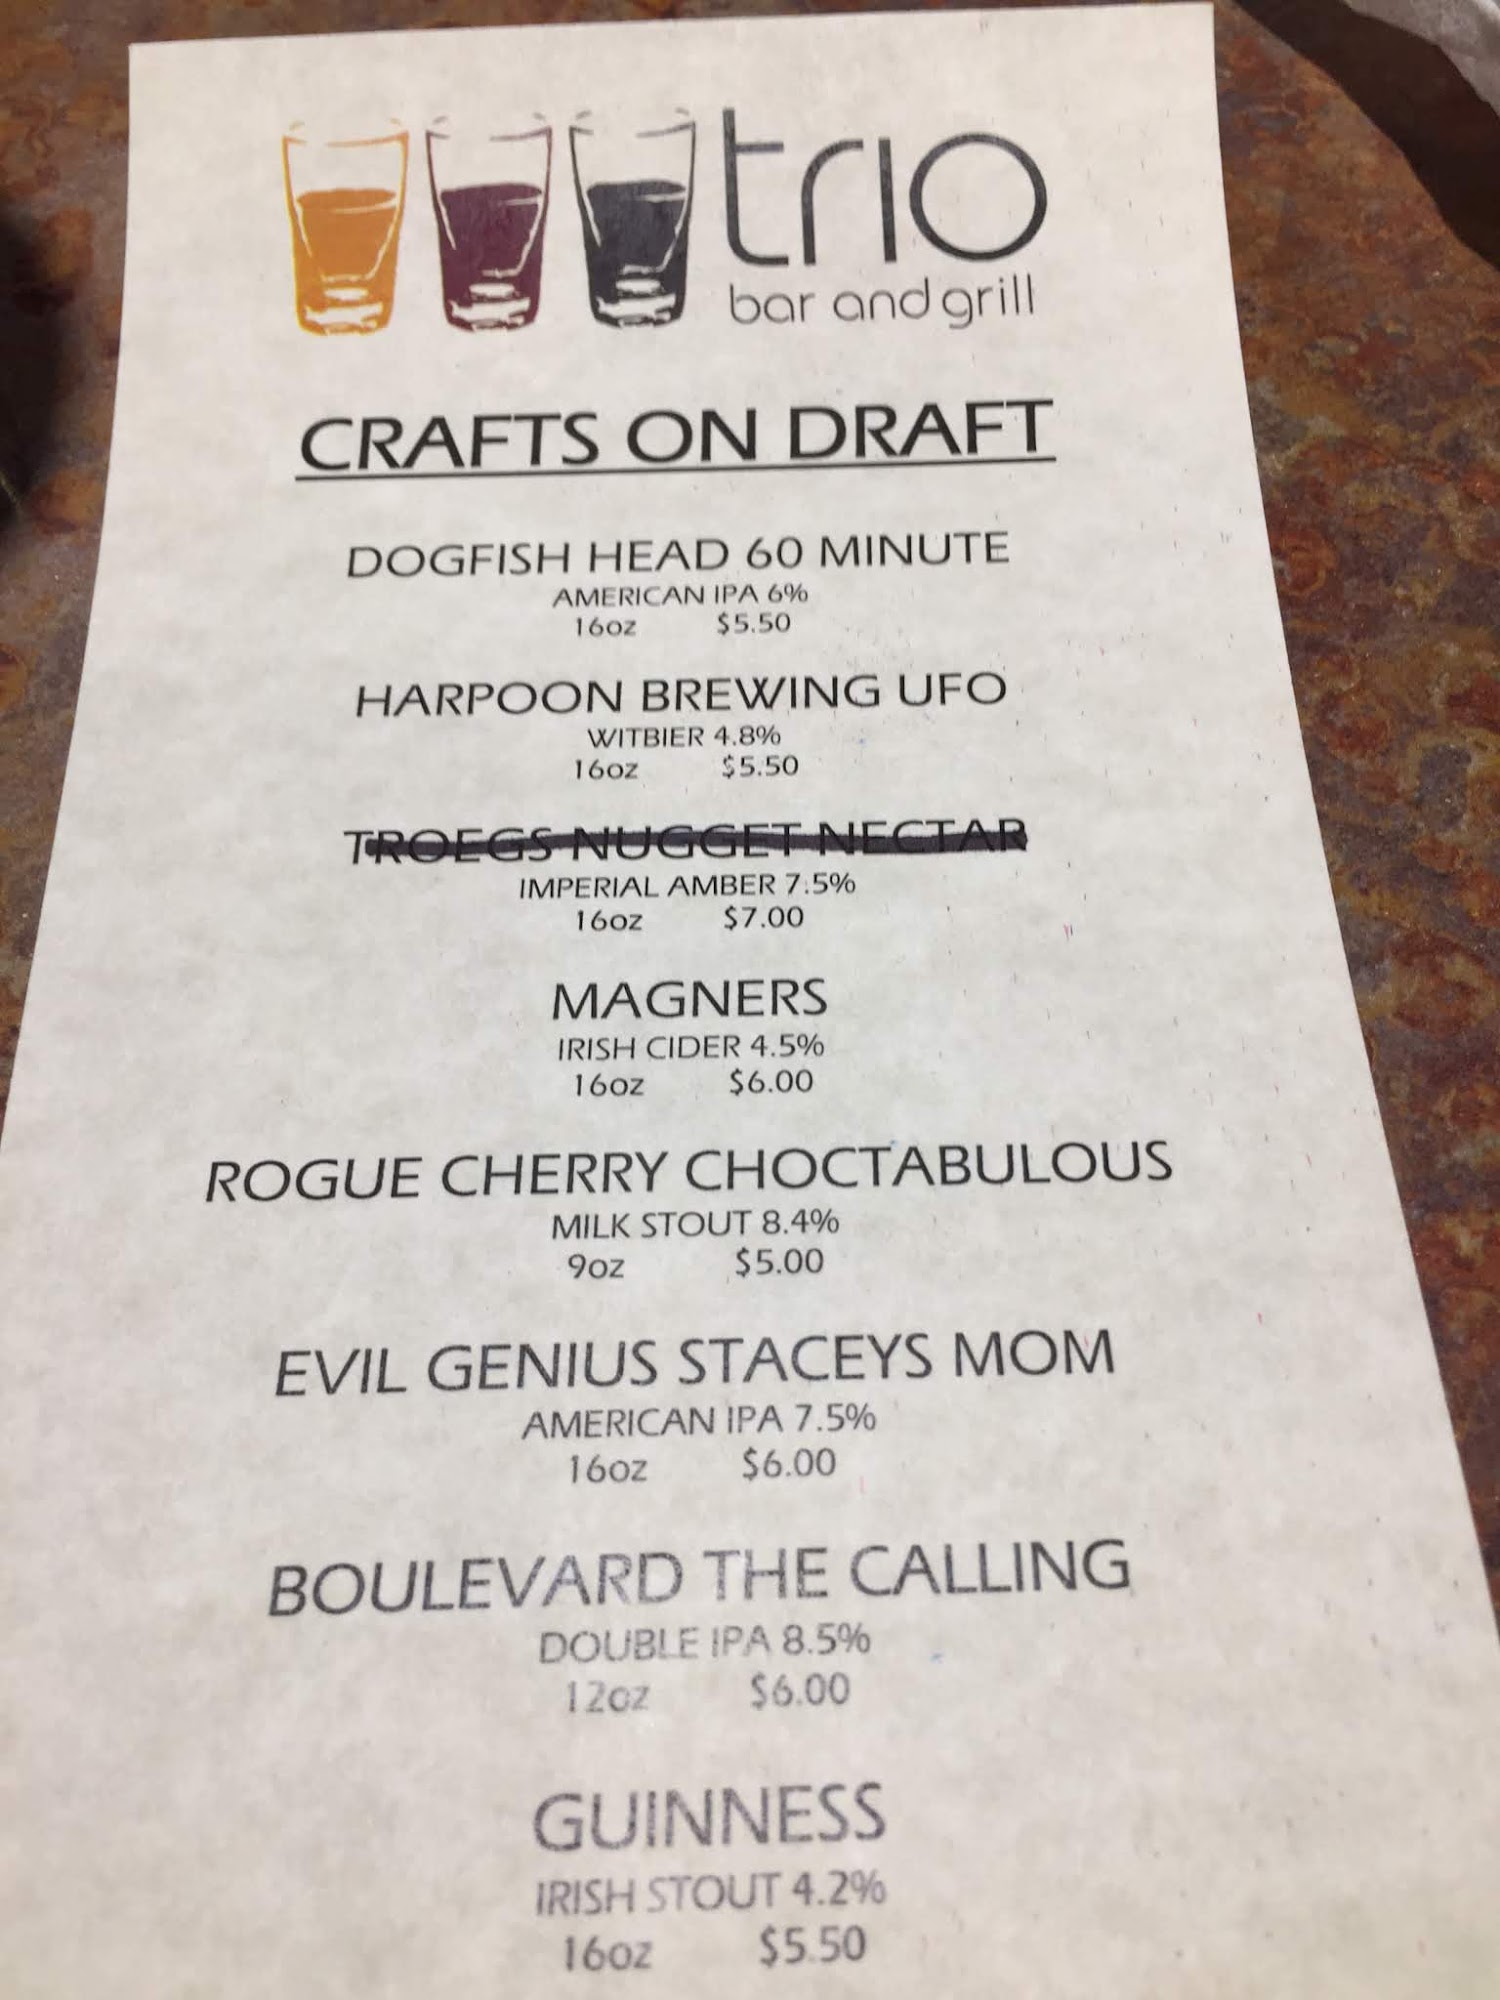 trio
bar and grill
CRAFTS ON DRAFT
DOGFISH HEAD 60 MINUTE
AMERICAN IPA 6%
16oz $5.50
HARPOON BREWING UFO
WITBIER 4.8%
16oz $5.50
TROEGS NUGGET NECTAR
IMPERIAL AMBER 7.5%
16oz $7.00
MAGNERS
IRISH CIDER 4.5%
16oz $6.00
ROGUE CHERRY CHOCTABULOUS
MILK STOUT 8.4%
9oz $5.00
EVIL GENIUS STACEYS MOM
AMERICAN IPA 7.5%
16oz $6.00
BOULEVARD THE CALLING
DOUBLE IPA 8.5%
12oz $6.00
GUINNESS
IRISH STOUT 4.2%
16oz $5.50